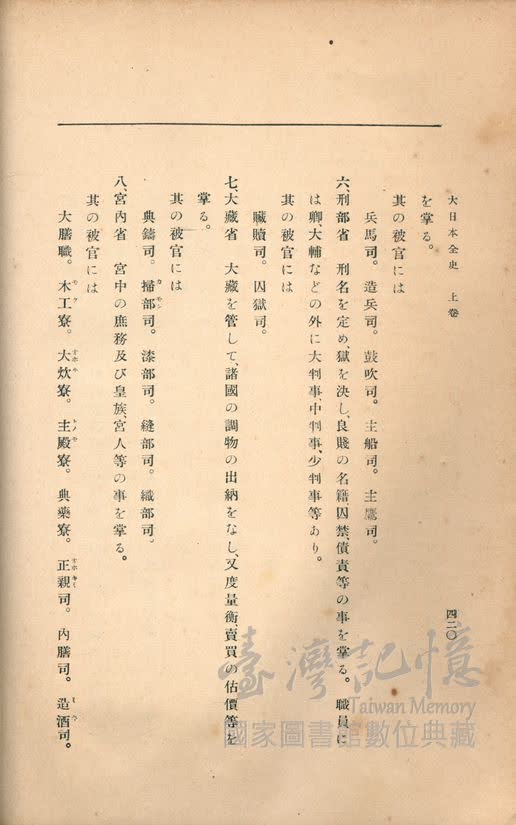 大日本全史　上卷
四二〇
を掌る。
其の被官には
兵馬司。造兵司。鼓吹司。主船司。主鷹司。
六、刑部省　刑名を定め、獄を決し、良賤の名籍囚禁、債責等の事を掌る。職員に
は卿、大輔などの外に大判事、中判事、少判事等あり。
其の被官には
贓贖司。囚獄司。
七、大藏省　大藏を管して、諸國の調物の出納をなし、又度量衡、賣買の估價等を
掌る。
其の被官には
典鑄司。掃部司。漆部司。縫部司。織部司。
八、宮內省　宮中の庶務及び皇族、宮人等の事を掌る。
其の被官には
大膳職。木工寮。大炊寮。主殿寮。典藥寮。正親司。內膳司。造酒司。
臺灣記憶
Taiwan Memory
國家圖書館數位典藏